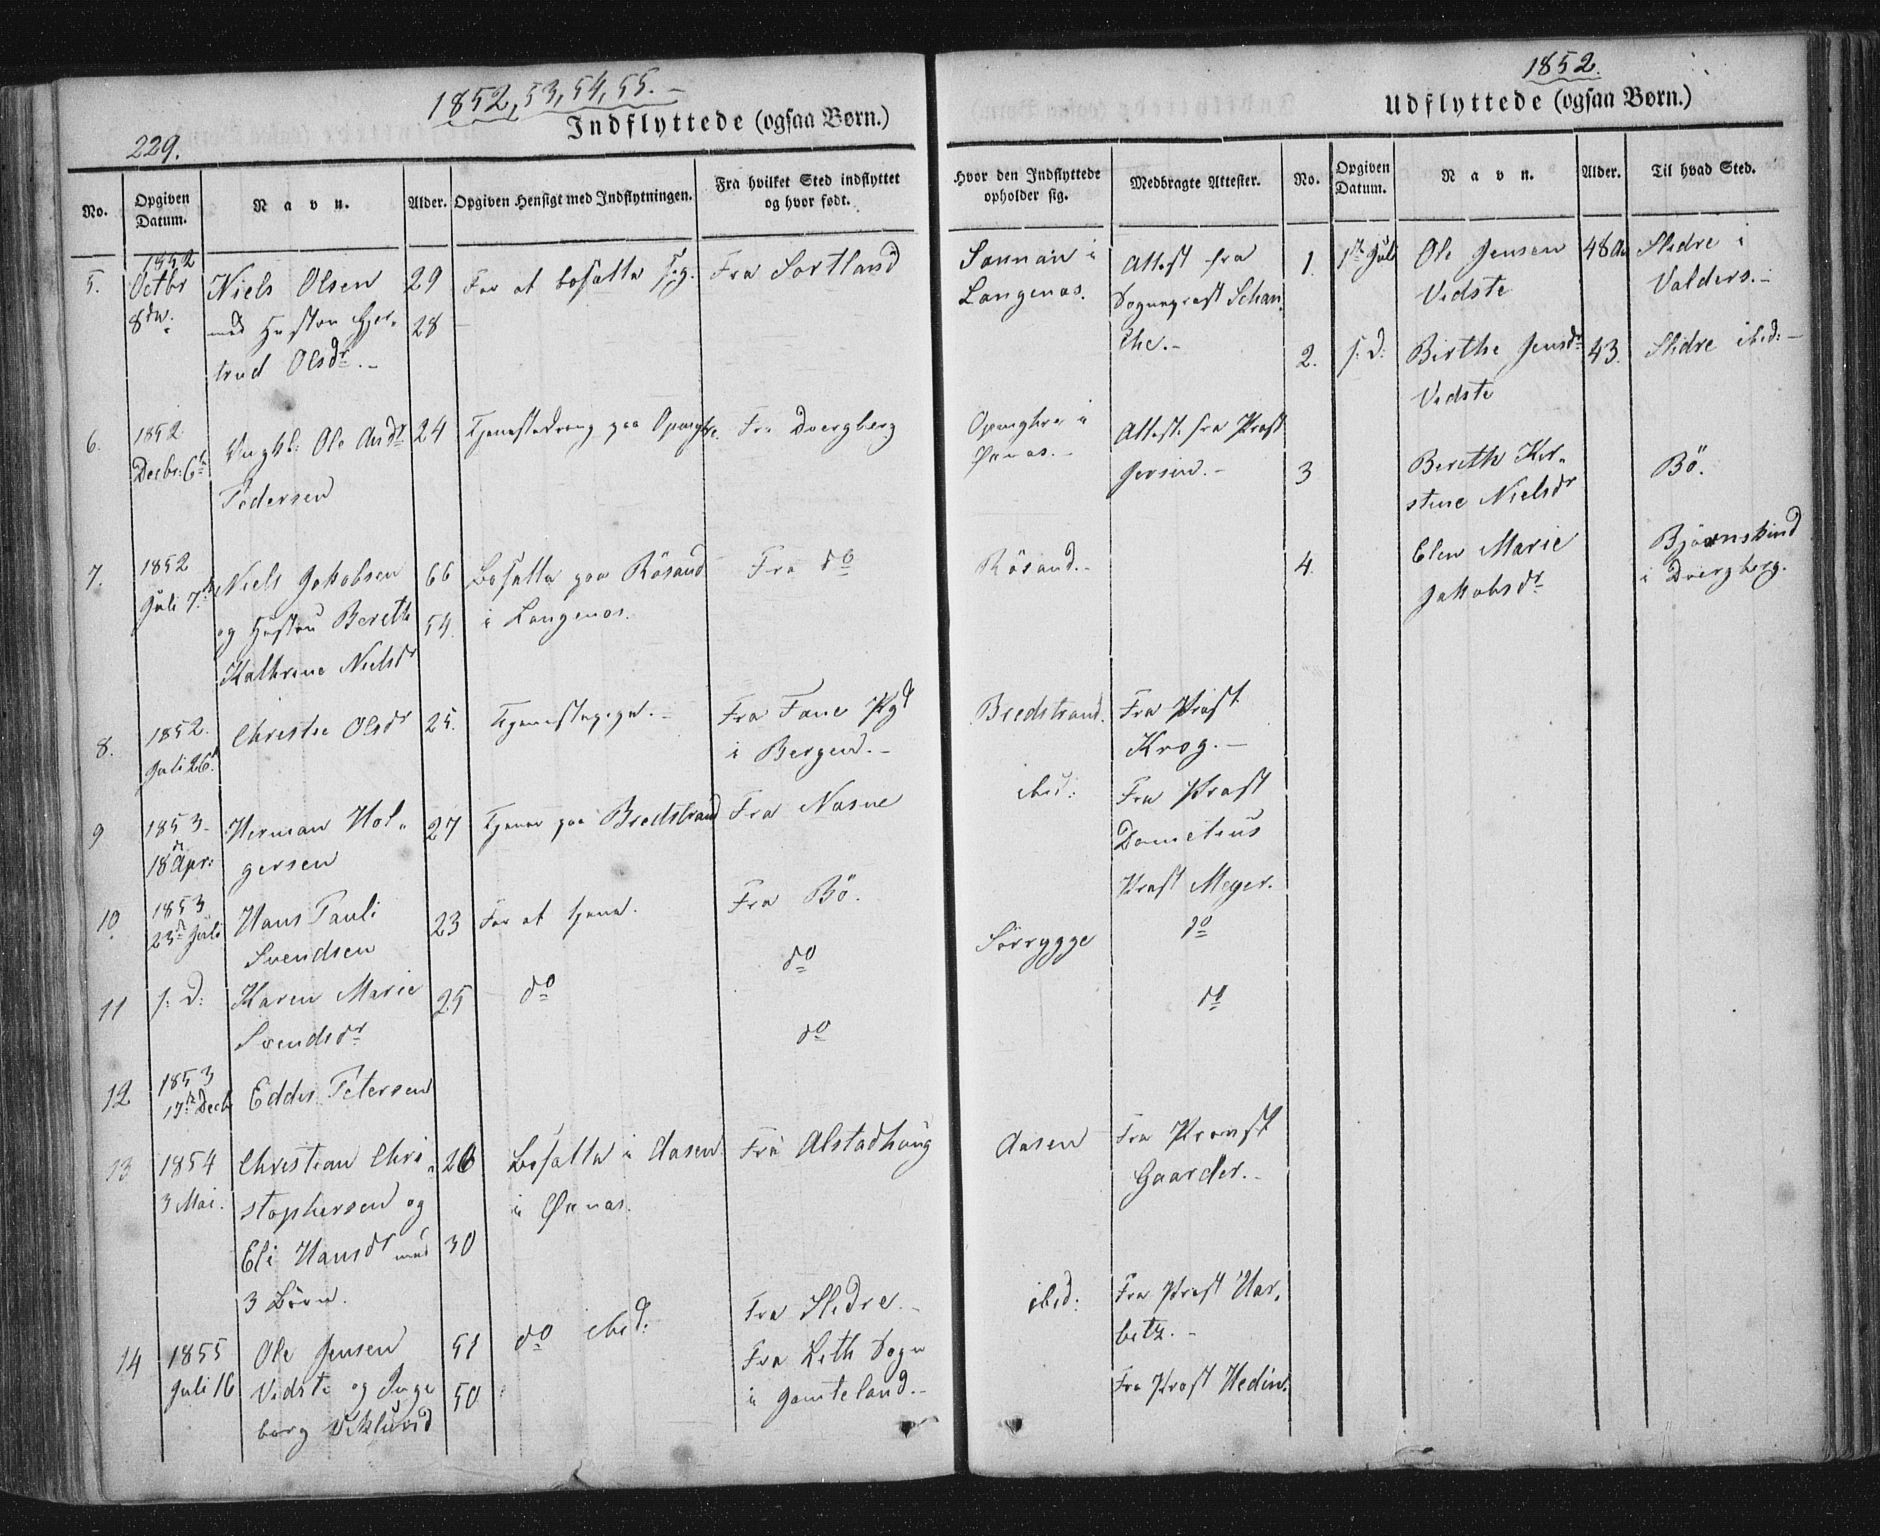 229.
1852, 53, 54, 55.
Indflyttede (ogsaa Børn.)
No.
Opgiven Datum.
Navn.
Alder.
Opgiven Hensigt med Indflytningen.
Fra hvilket Sted indflyttet og hvor født.
Hvor den Indflyttede opholder sig.
Medbragte Attester.
5.
1852
Octbr
8de
Niels Olsen
med Hustru Gjer-
trud Olsdr.
29
28
For at bosatte sig.
Fra Sortland
i
Langenæs.
Attest fra
Sognepræst Schan-
che.
6.
1852
Decbr: 6te
Ungk: Ole Andr
Pedersen
24
Tjenestedreng paa
Fra Dvergberg
i
Øxnæs.
Attest fra Præst
Jersin.
7.
1852
Juli 7de
Niels Jakobsen
og Hustru Bereth
Kathrine Nielsdr
66
54.
Bosatte paa Rösand
i Langenæs.
Fra do
Rösand.
8.
1852.
Juli 26.
Christie Olsdr
25.
Tjenestepige.
Fra Fane Pgd
i Bergen.
Bredstrand.
Fra Præst
Krog.
9
1853.
18 Apr:
Herman Hol-
gersen
27
Tjener paa Bredstrand
Fra Næsne
ibid:
Fra Præst
Dometius
10.
1853
23de Juli
Hans Pauli
Svendsen
23
For at tjene.
Fra Bö.
do
Sörrygge
Præst Meyer.
do
11
s: D:
Karen Marie
Svendsdr
25
do
do
do
12
1853
17de Decb
Eddes Petersen
13
1854
3 Mai.
Christian Chri-
stophersen og
Eli Hansdr med
3 Börn.
26
30
Bosatte i Aasen
i Øxnæs.
Fra Alstadhaug
Aasen
Fra Provst
Gaarder.
14
1855
Juli 16
Ole Jensen
Vidste og Inge
borg Viklund
51
50
do ibid:
Fra Slidre.
Fra Lith Sogn
i Jamteland.
ibid:
Fra Præst Har-
bitz.
Fra Præst Hedin.
1852.
Udflyttede (ogsaa Børn.)
No.
Opgiven Datum.
Navn.
Alder.
Til hvad Sted.
1.
1ste Juli
Ole Jensen
Vidste
48 Aar
Slidre i
Valders.
2.
s: D:
Birthe Jensdr
Vidste
43.
Slidre ibid:
3
Bereth Kir-
stine Nielsdr
Bö.
4.
Elen Marie
Jakobsdr
Björnskind
i Dvergberg.